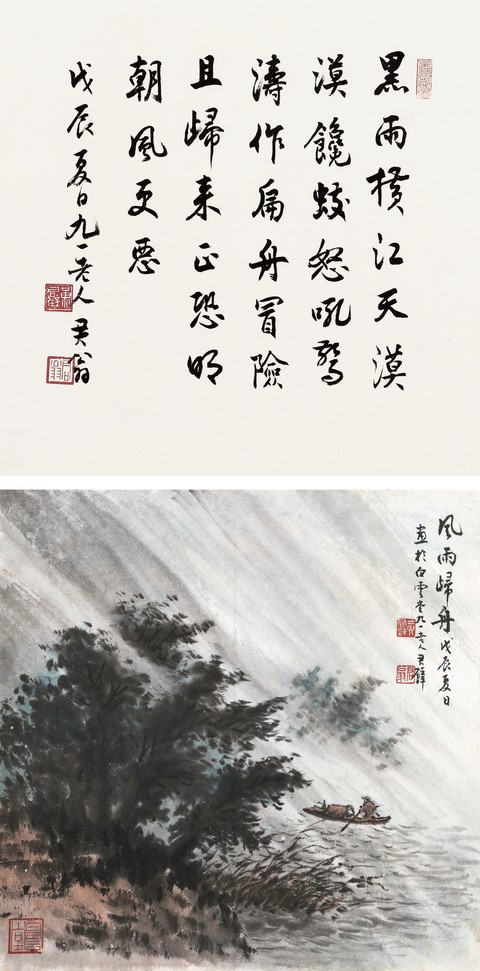 黑雨横江天漠
漠饞蛟怒吼驚
濤作扁舟冒險
且歸来正恐明
朝風更惡
戊辰夏日九一老人君翁
風雨歸舟戊辰夏日
畫於白雲堂九一老人君璧